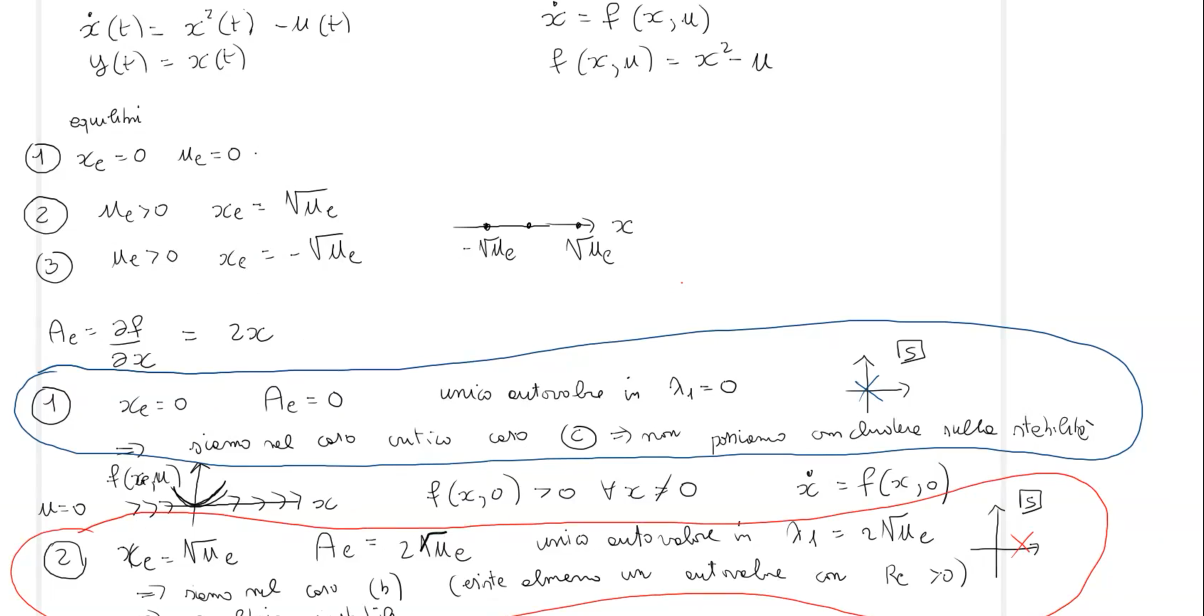 ẋ(t) = x²(t) - u(t)
ẋ = f(x,u)
y(t) = x(t)
f(x,u) = x² - u
equilibri
① xe = 0 ue = 0
② ue > 0 xe = √ue
③ ue > 0 xe = -√ue
-√ue √ue x
Ae = ∂f/∂x = 2x
① xe = 0 Ae = 0 unico autovalore in λ1 = 0
S
⇒ siamo nel caso critico caso ⓒ ⇒ non possiamo concludere sulla stabilità
f(xe,u)
u=0 x f(x,0) > 0 ∀x ≠ 0 ẋ = f(x,0)
S
② xe = √ue Ae = 2√ue unico autovalore in λ1 = 2√ue
⇒ siamo nel caso (b) (esiste almeno un autovalore con Re > 0)